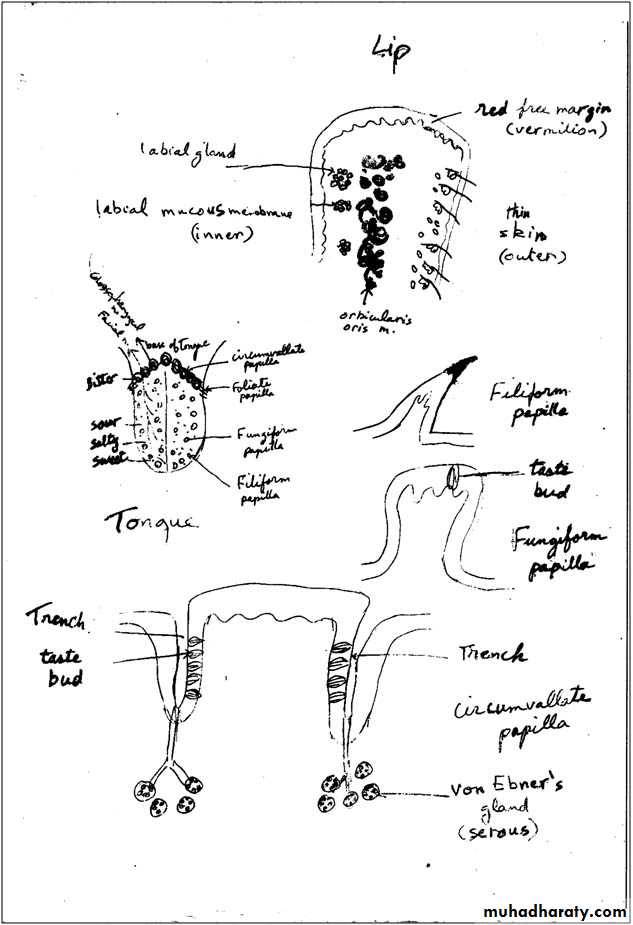 Lip
red free margin
(vermilion)
labial gland
labial mucous membrane
(inner)
thin
skin
(outer)
orbicularis
oris m.
Glossopharyngeal
Facial n.
base of tongue
circumvallate
papilla
Bitter
Foliate
papilla
sour
salty
sweet
Fungiform
papilla
Filiform
papilla
Tongue
Filiform
papilla
taste
bud
Fungiform
papilla
Trench
taste
bud
Trench
circumvallate
papilla
von Ebner's
gland
(serous)
muhadharaty.com